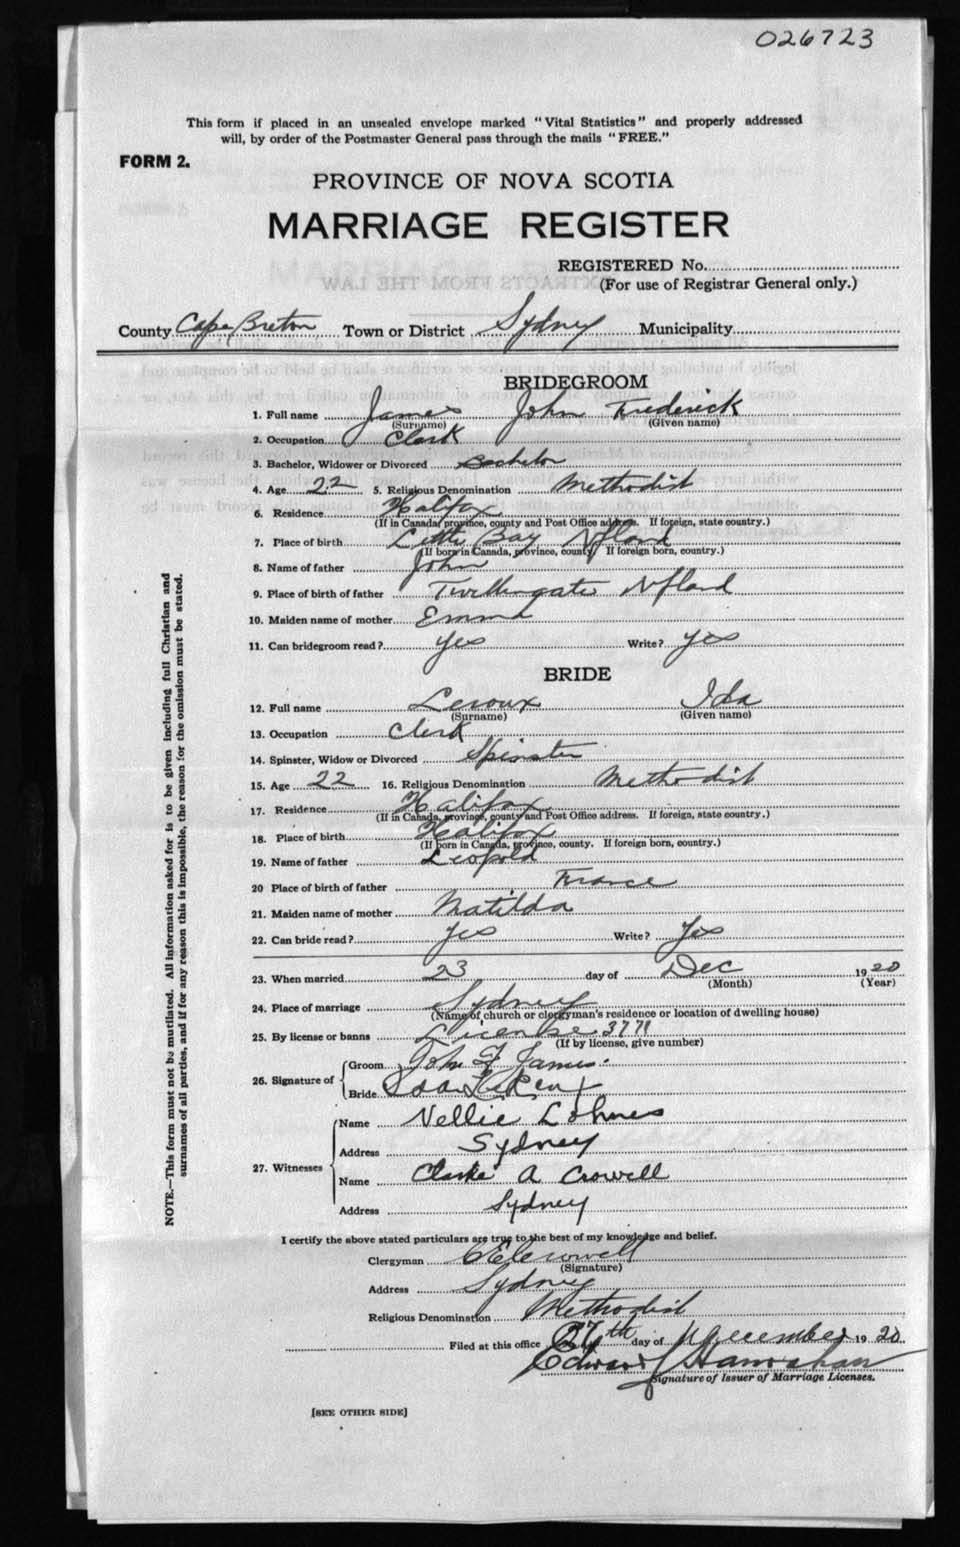 026723
This form if placed in an unsealed envelope marked "Vital Statistics" and properly addressed
will, by order of the Postmaster General pass through the mails "FREE."
FORM 2.
PROVINCE OF NOVA SCOTIA
MARRIAGE REGISTER
REGISTERED No.
(For use of Registrar General only.)
County Cape Breton Town or District Sydney Municipality
BRIDEGROOM
1. Full name James John Frederick
(Surname) (Given name)
2. Occupation Clark
3. Bachelor, Widower or Divorced Bachelor
4. Age 22 5. Religious Denomination Methodist
6. Residence Halifax
(If in Canada, province, county and Post Office address. If foreign, state country.)
7. Place of birth Little Bay Nfland
(If born in Canada, province, county. If foreign born, country.)
8. Name of father John
9. Place of birth of father Twillingate Nfland
10. Maiden name of mother Emma
11. Can bridegroom read? Yes Write? Yes
BRIDE
12. Full name Leroux Ida
(Surname) (Given name)
13. Occupation Clerk
14. Spinster, Widow or Divorced Spinster
15. Age 22 16. Religious Denomination Methodist
17. Residence Halifax
(If in Canada, province, county and Post Office address. If foreign, state country.)
18. Place of birth Halifax
(If born in Canada, province, county. If foreign born, country.)
19. Name of father Leopold
20 Place of birth of father France
21. Maiden name of mother Matilda
22. Can bride read? Yes Write? Yes
23. When married 23 day of Dec 1920
(Month) (Year)
24. Place of marriage Sydney
(Name of church or clergyman's residence or location of dwelling house)
25. By license or banns License 3771
(If by license, give number)
26. Signature of Groom John F James
Bride Ida
27. Witnesses Name Nellie Lohnes
Address Sydney
Name Clarke A Crowell
Address Sydney
I certify the above stated particulars are true to the best of my knowledge and belief.
Clergyman Crowell
(Signature)
Address Sydney
Religious Denomination Methodist
Filed at this office 27th day of December 1920
Edward J Hanrahan
Signature of Issuer of Marriage Licenses.
[SEE OTHER SIDE]
NOTE.—This form must not be mutilated. All information asked for is to be given including full Christian and
surnames of all parties, and if for any reason this is impossible, the reason for the omission must be stated.